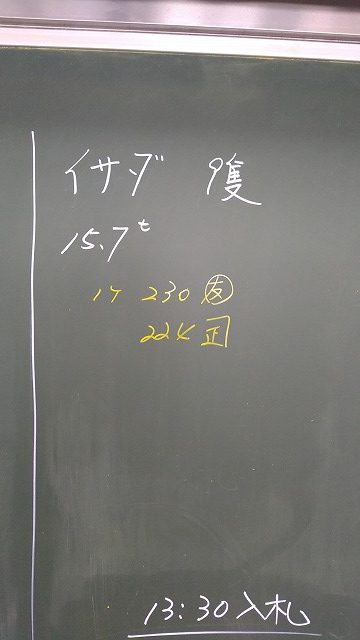 イサダ 9隻
15.7t
230 友
224 正
13:30入札